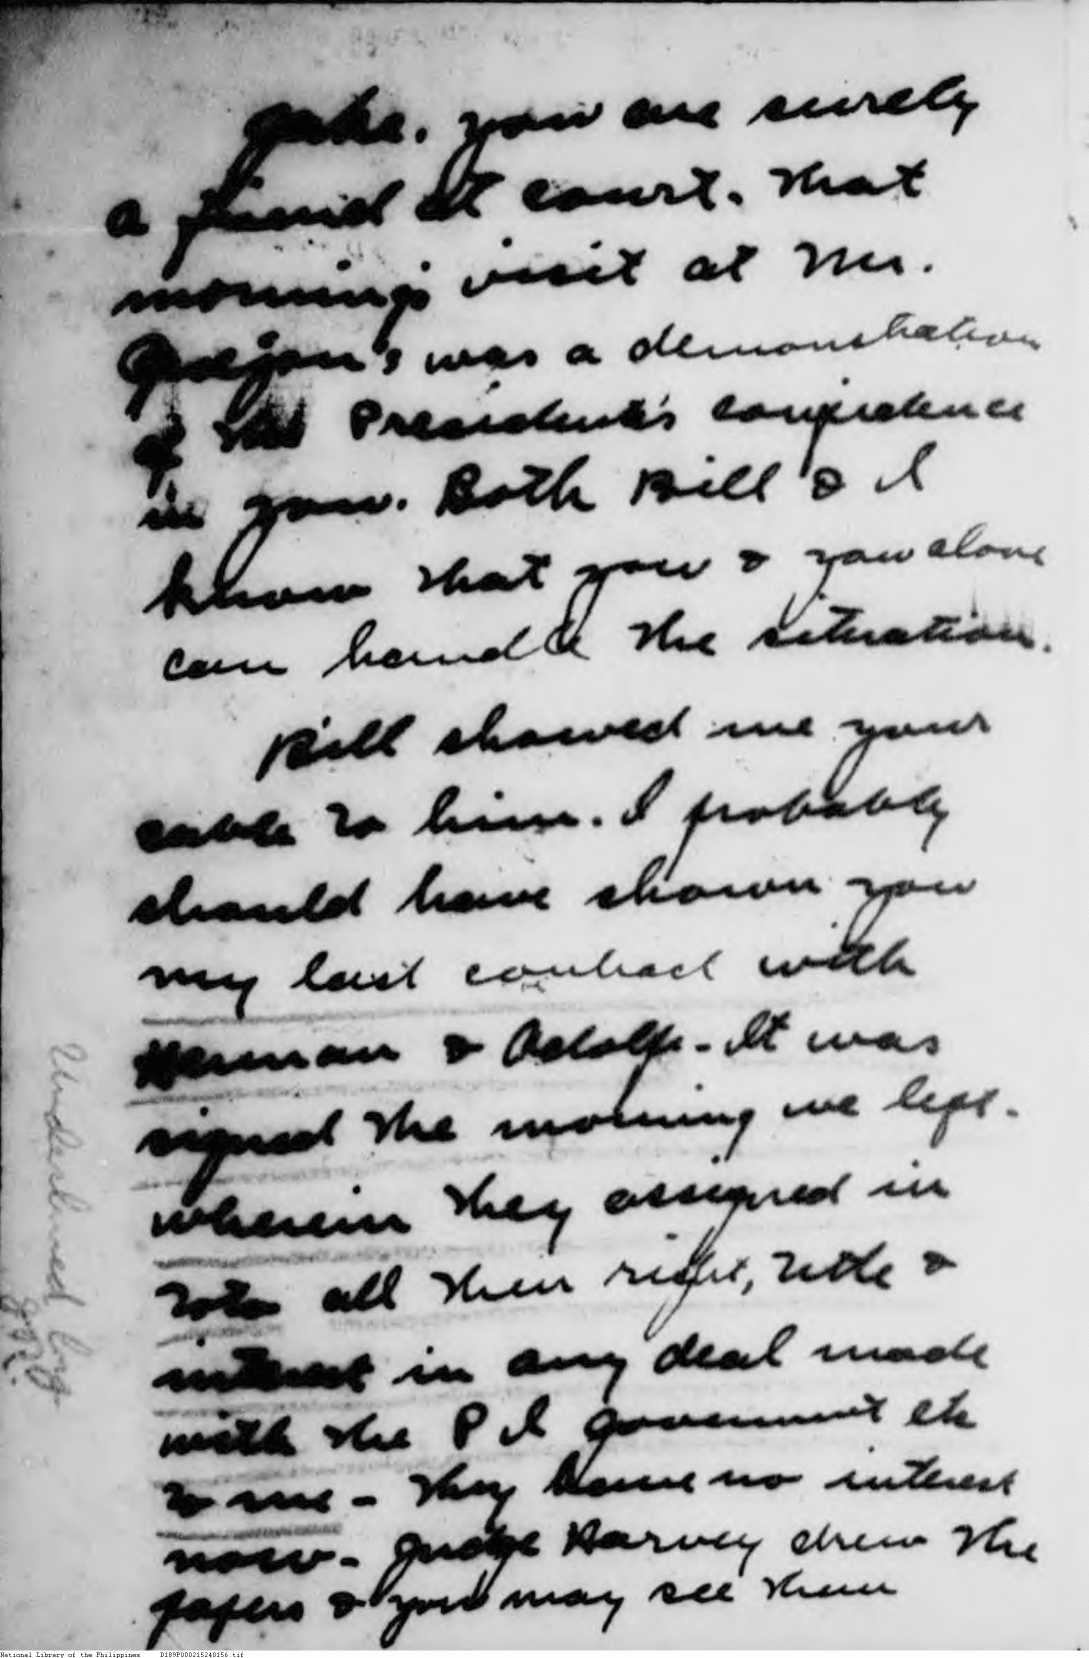 Jake. you are surely
a friend at court. That
morning's visit at Mrs.
Quezon's was a demonstration
of the President's confidence
in you. Both Bill & I
know that you & you alone
can handle the situation.
Bill showed me your
cable to him. I probably
should have shown you
my last contract with
Herman & Adolph - It was
signed the morning we left -
wherein they assigned in
toto all their right, title &
interest in any deal made
with the P I government etc
to me - They have no interest
now - Judge Harvey drew the
papers & you may see them
Underlined by
National Library of the Philippines D189P000215240156.tif